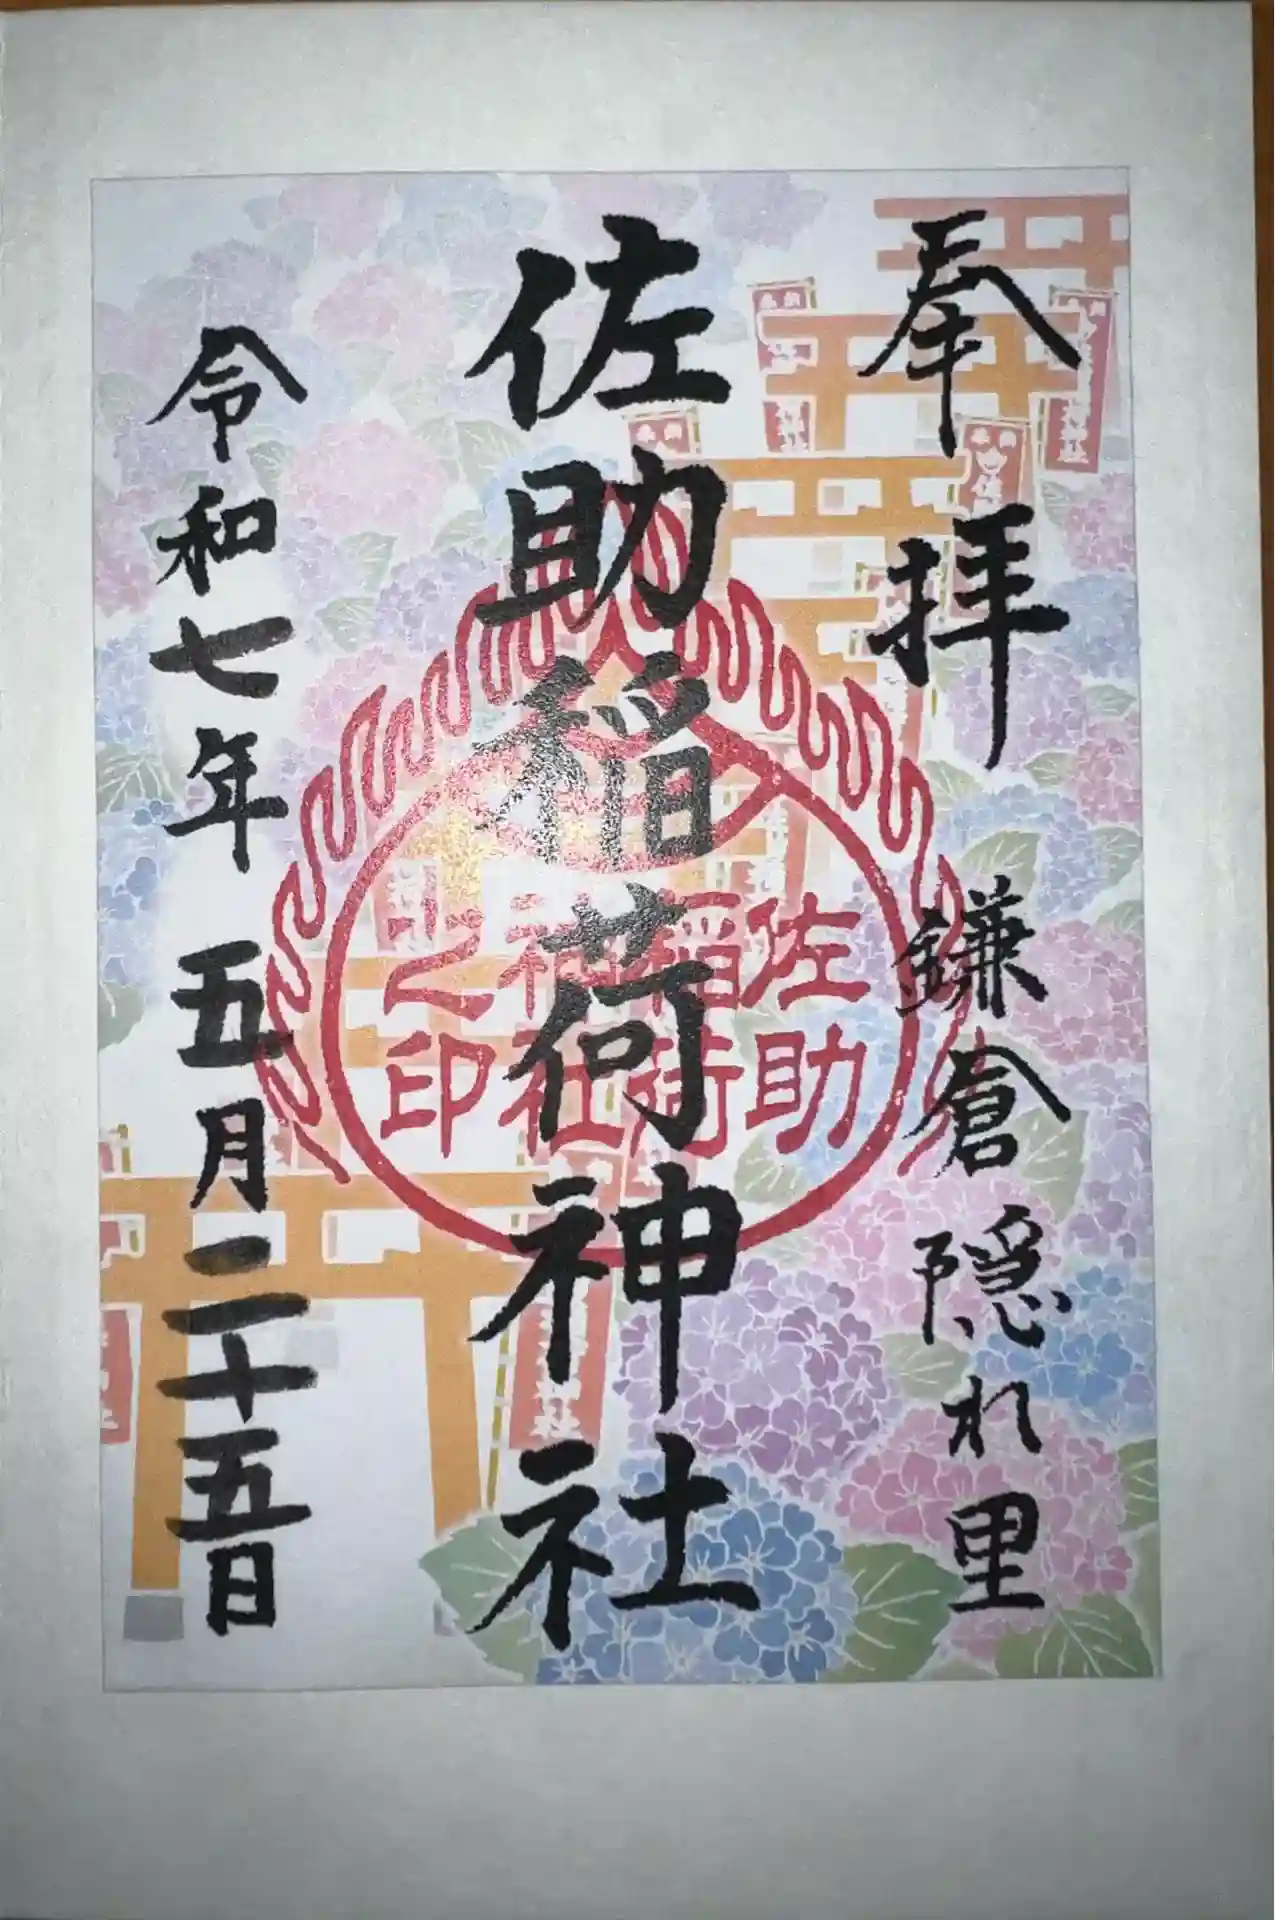 奉拝 鎌倉隠れ里
佐助稲荷神社
令和七年 五月二十五日
佐助
稲荷
神社
之印